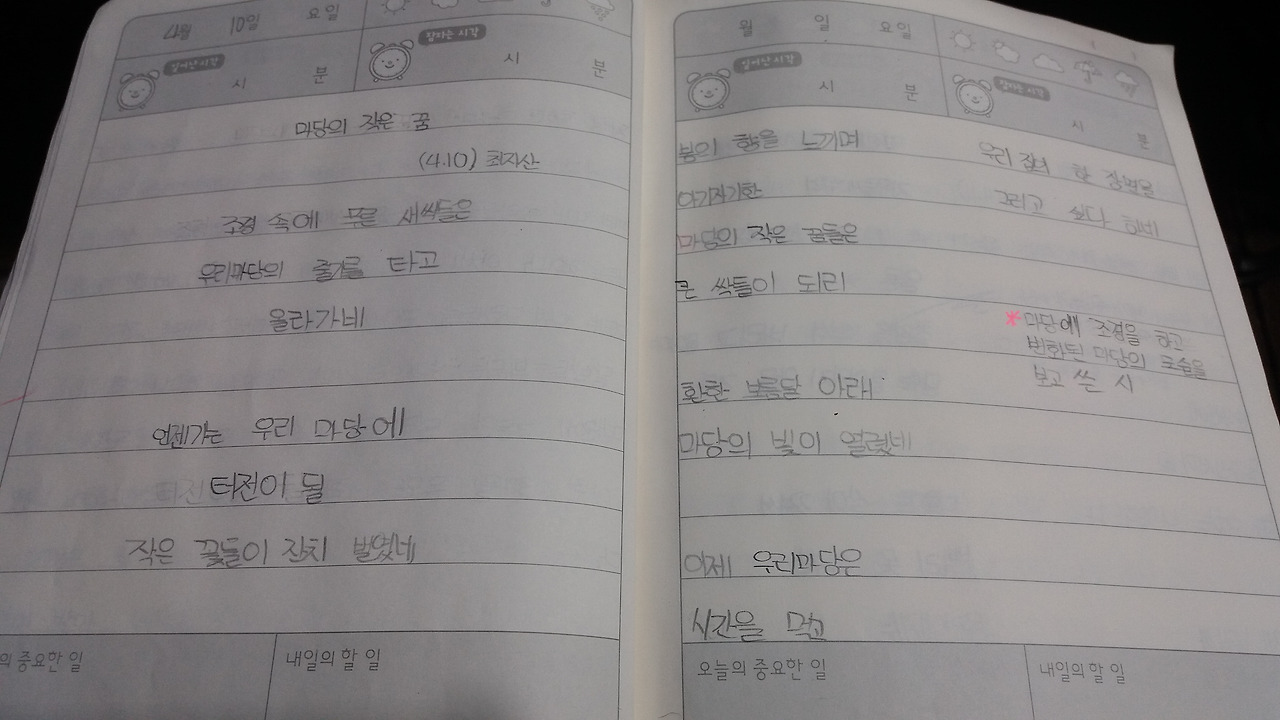 4월 10일 요일
일어난시각 시 분
잠자는시각 시 분
마당의 작은 꿈
(4.10) 최자산
조경 속에 푸른 새싹들은
우리마당의 줄기를 타고
올라가네
언젠가는 우리 마당에
터전이 될
작은 꽃들이 잔치 벌였네
의 중요한 일
내일의 할 일
월 일 요일
일어난시각 시 분
잠자는시각 시 분
봄의 향을 느끼며
아기자기한
마당의 작은 꿈들은
큰 싹들이 되리
환한 보름달 아래
마당의 빛이 열렸네
이제 우리마당은
시간을 먹고
우리 집의 한 장면을
그리고 싶다 하네
*마당에 조경을 하고
변화된 마당의 모습을
보고 쓴 시
오늘의 중요한 일
내일의 할 일